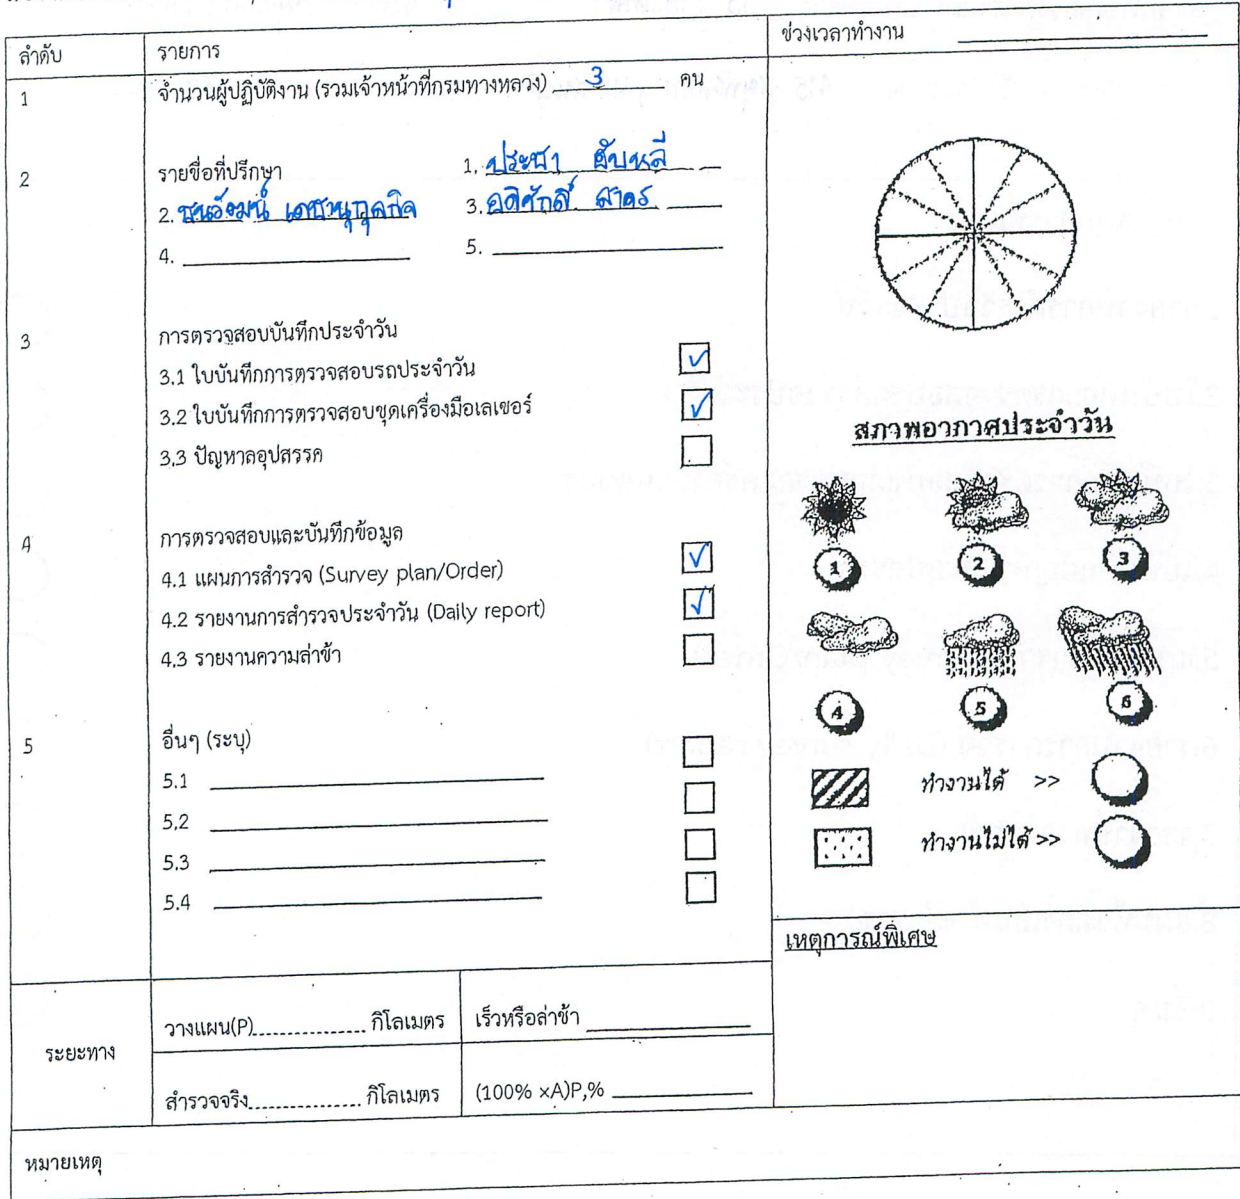 ลำดับ รายการ ช่วงเวลาทำงาน
1 จำนวนผู้ปฏิบัติงาน (รวมเจ้าหน้าที่กรมทางหลวง) 3 คน
2 รายชื่อที่ปรึกษา 1. ประชา
2. เดชานุกุลกิจ 3. อดิศักดิ์ สาคร
4. 5.
3 การตรวจสอบบันทึกประจำวัน
3.1 ใบบันทึกการตรวจสอบรถประจำวัน ✓
3.2 ใบบันทึกการตรวจสอบชุดเครื่องมือเลเซอร์ ✓
3.3 ปัญหาอุปสรรค
สภาพอากาศประจำวัน
4 การตรวจสอบและบันทึกข้อมูล
4.1 แผนการสำรวจ (Survey plan/Order) ✓
4.2 รายงานการสำรวจประจำวัน (Daily report) ✓
4.3 รายงานความล่าช้า
1 2 3
4 5 6
5 อื่นๆ (ระบุ)
5.1
5.2
5.3
5.4
ทำงานได้ >>
ทำงานไม่ได้ >>
เหตุการณ์พิเศษ
ระยะทาง
วางแผน(P) กิโลเมตร เร็วหรือล่าช้า
สำรวจจริง กิโลเมตร (100% ×A)P,%
หมายเหตุ